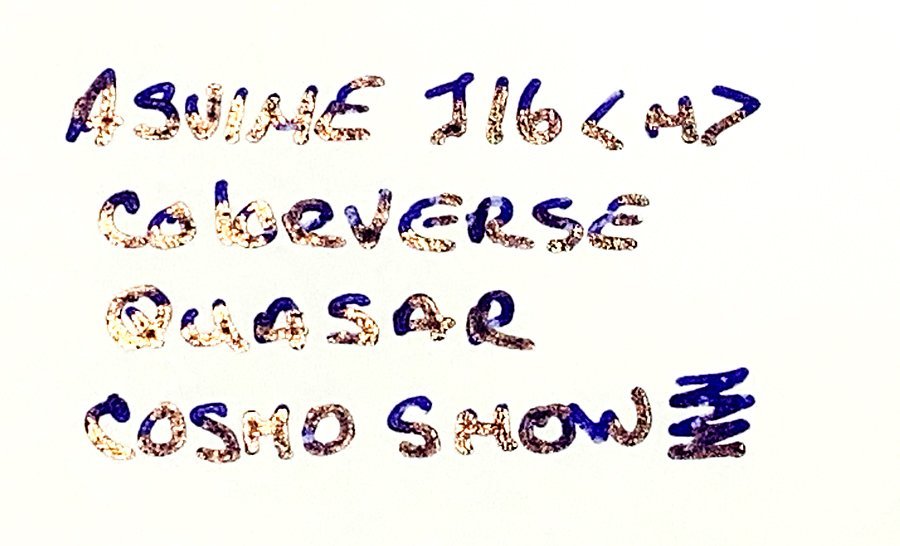 ASVINE J16 <M>
COLORVERSE
QUASAR
COSMO SHOW